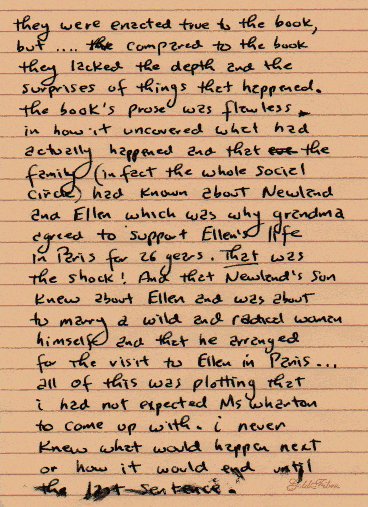 they were enacted true to the book,
but .... the compared to the book
they lacked the depth and the
surprises of things that happened.
the book's prose was flawless
in how it uncovered what had
actually happened and that the
family (in fact the whole social
circle) had known about Newland
and Ellen which was why grandma
agreed to support Ellen's life
in Paris for 26 years. That was
the shock! And that Newland's son
knew about Ellen and was about
to marry a wild and radical woman
himself and that he arranged
for the visit to Ellen in Paris...
all of this was plotting that
i had not expected Ms Wharton
to come up with. i never
knew what would happen next
or how it would end until
the last sentence.